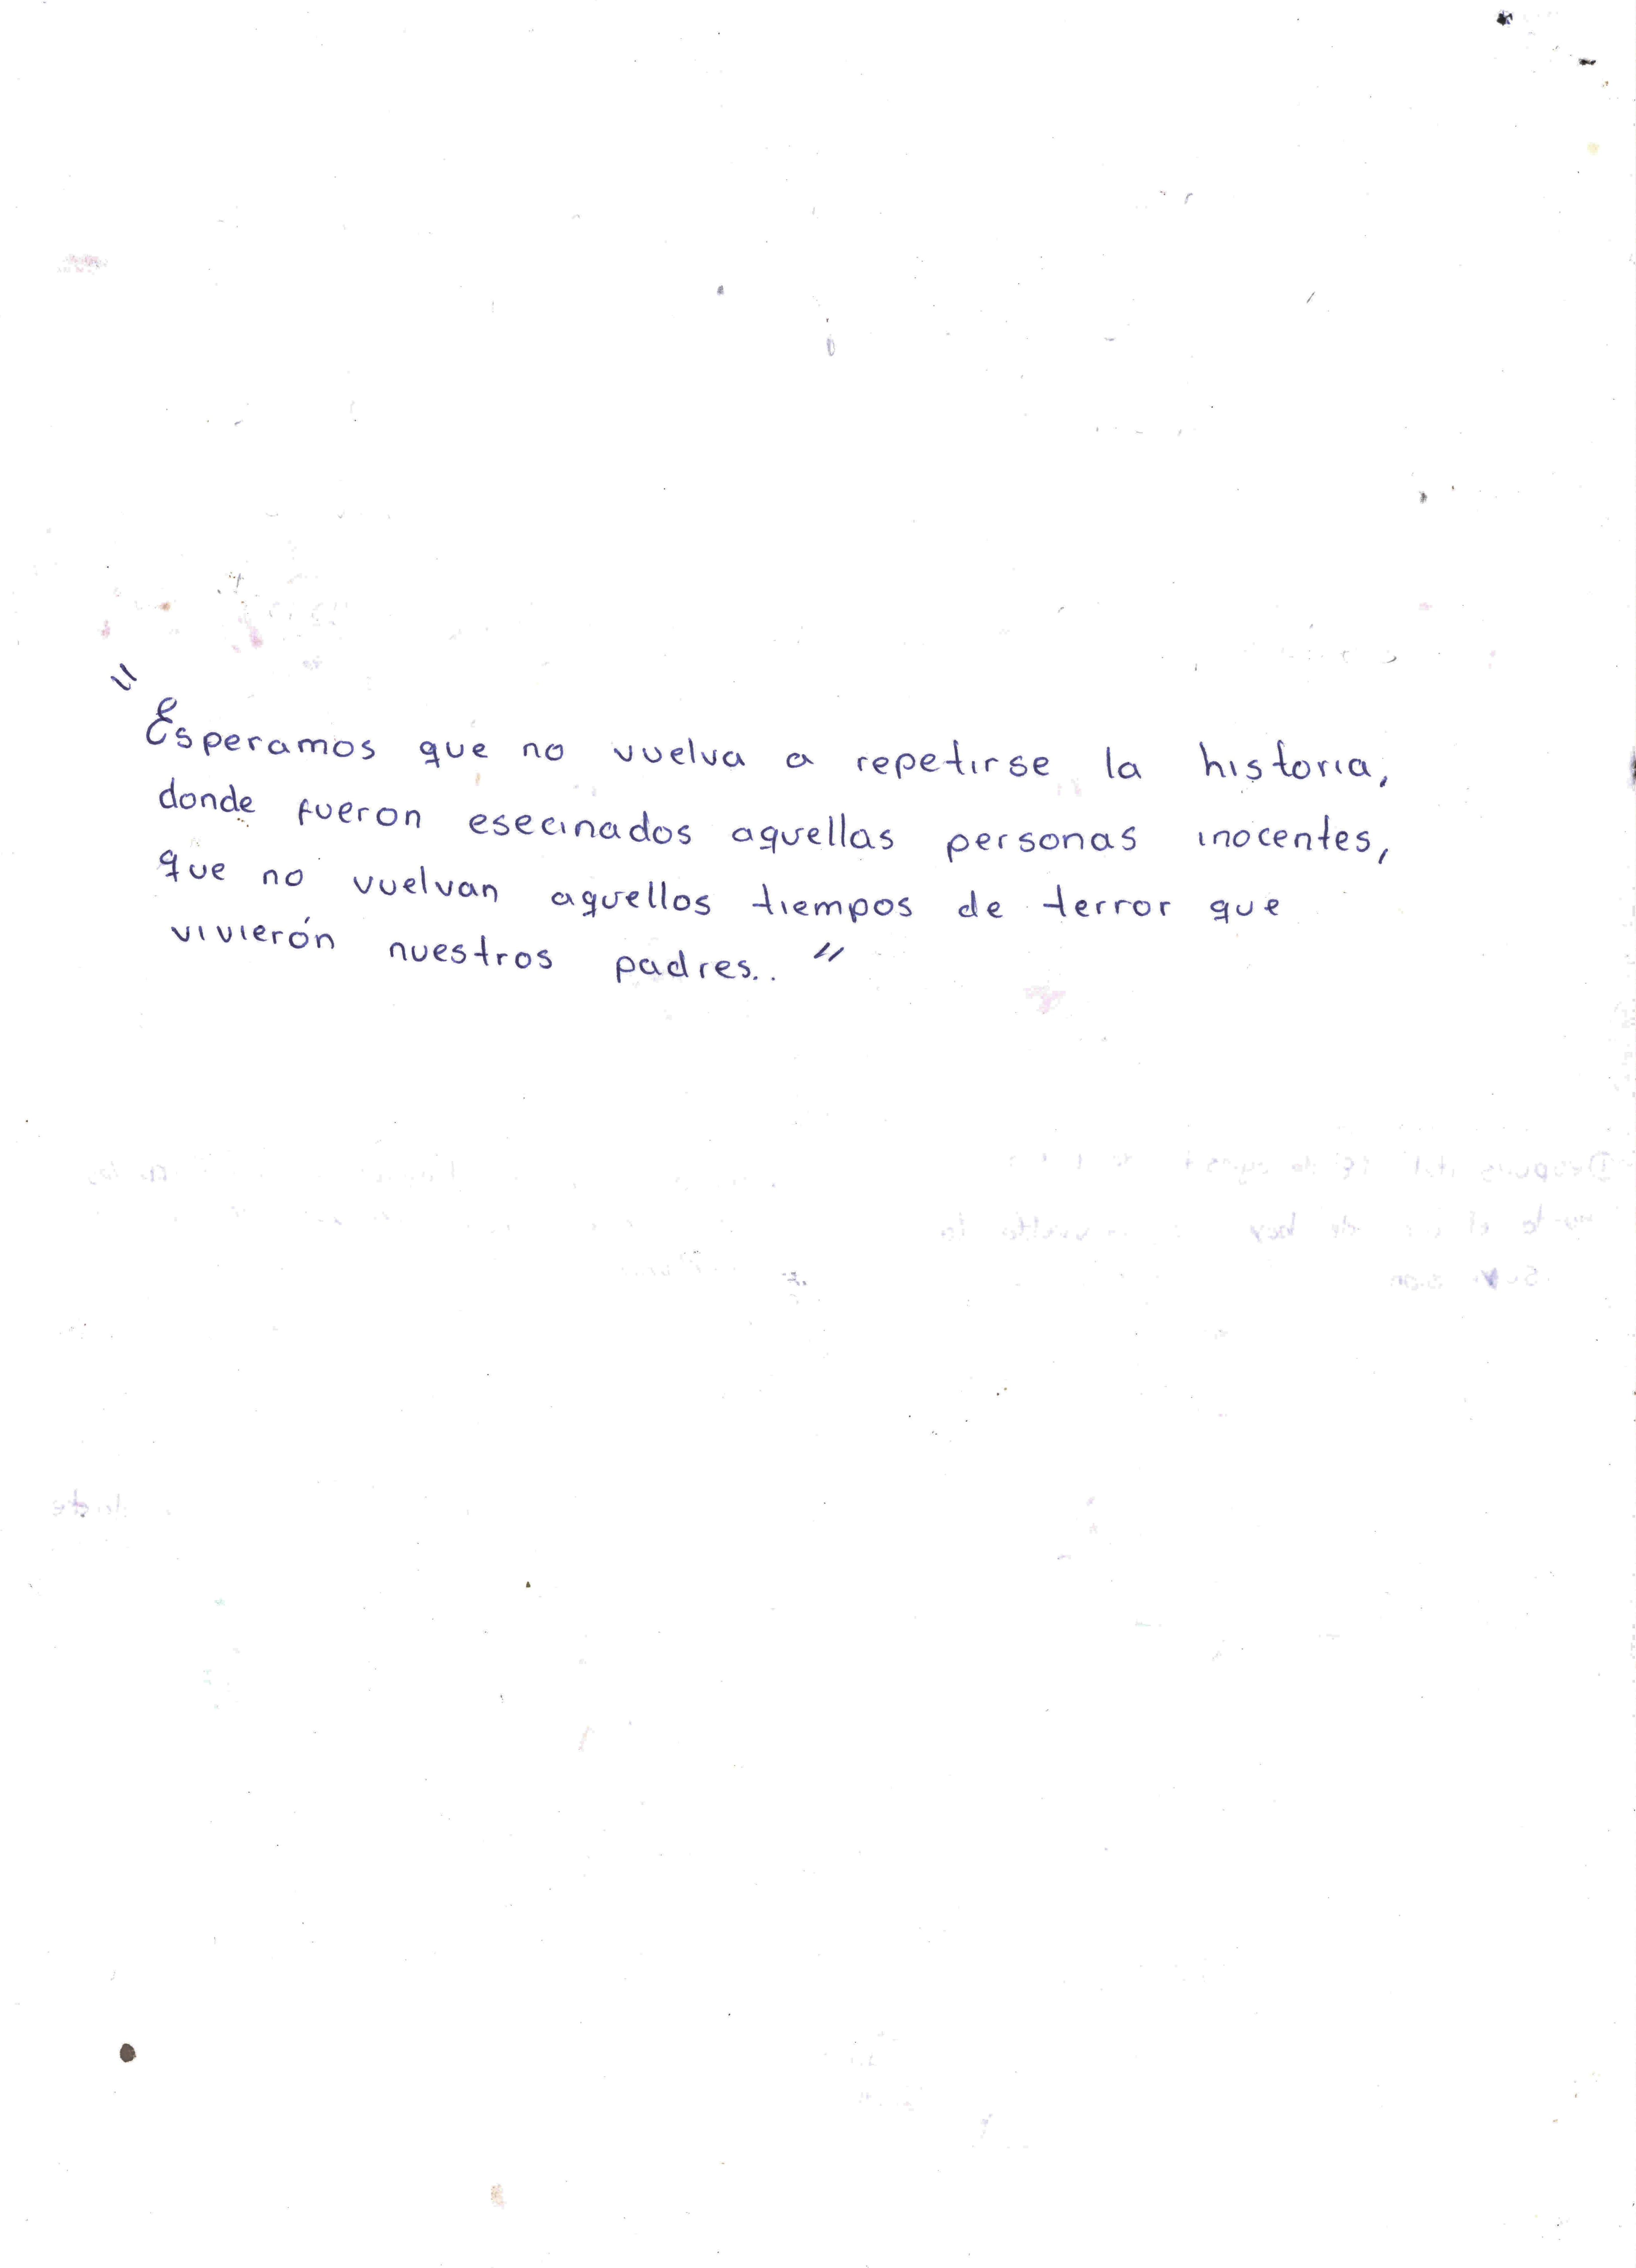 "Esperamos que no vuelva a repetirse la historia,
donde fueron esecinados aquellas personas inocentes,
que no vuelvan aquellos tiempos de terror que
vivierón nuestros padres.. "